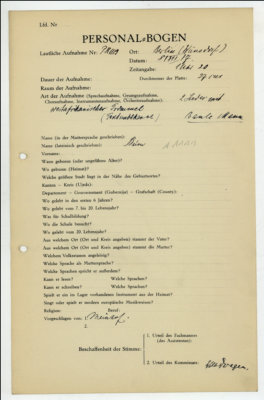 Lfd. Nr
PERSONAL-BOGEN
Lautliche Aufnahme Nr.: Ort: Berlin
Datum:
Zeitangabe:
Dauer der Aufnahme: Durchmesser der Platte: 27 cm
Raum der Aufnahme:
Art der Aufnahme (Sprechaufnahme, Gesangsaufnahme, 2 Lieder mit
Choraufnahme, Instrumentenaufnahme, Orchesteraufnahme):
westafrikanischer Trommel
Name (in der Muttersprache geschrieben):
Name (lateinisch geschrieben):
Vorname:
Wann geboren (oder ungefähres Alter)?
Wo geboren (Heimat)?
Welche größere Stadt liegt in der Nähe des Geburtsortes?
Kanton — Kreis (Ujedz):
Department — Gouvernement (Gubernija) — Grafschaft (County):
Wo gelebt in den ersten 6 Jahren?
Wo gelebt vom 7. bis 20. Lebensjahr?
Was für Schulbildung?
Wo die Schule besucht?
Wo gelebt vom 20. Lebensjahr?
Aus welchem Ort (Ort und Kreis angeben) stammt der Vater?
Aus welchem Ort (Ort und Kreis angeben) stammt die Mutter?
Welchem Volksstamm angehörig?
Welche Sprache als Muttersprache?
Welche Sprachen spricht er außerdem?
Kann er lesen? Welche Sprachen?
Kann er schreiben? Welche Sprachen?
Spielt er ein im Lager vorhandenes Instrument aus der Heimat?
Singt oder spielt er modern europäische Musikweisen?
Religion: Beruf:
Vorgeschlagen von: 1. Meinhof
2.
Beschaffenheit der Stimme:
1. Urteil des Fachmannes
(des Assistenten):
2. Urteil des Kommissars: